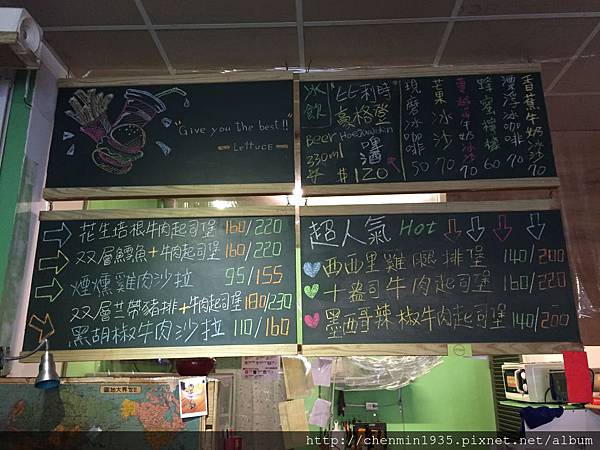 "Give you the best!!"
- Lettuce -
冰飲
比利時
豪格登
Hoegaarden
啤酒
Beer
330ml
$120
現壓冰咖啡 50
芒果冰沙 70
牛奶冰沙 70
蜂蜜檸檬 60
漂浮冰咖啡 70
香蕉牛奶冰沙 70
花生培根牛肉起司堡 160/220
双層鱈魚+牛肉起司堡 160/220
煙燻雞肉沙拉 95/155
双層兰帶豬排+牛肉起司堡 180/230
黑胡椒牛肉沙拉 110/160
超人氣 Hot
西西里雞腿排堡 140/200
十盎司牛肉起司堡 160/220
墨西哥辣椒牛肉起司堡 140/200
http://chenmin1935.pixnet.net/album